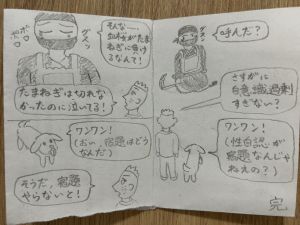 そんな……、
がたま
ねぎに負け
るなんて！
グスン
ボロボロ
たまねぎは切れな
かったのに泣いてる！
グスン
呼んだ？
さすがに
自意識過剰
すぎない？
ワンワン！
（おい、宿題はどう
なんだ）
そうだ、宿題
やらないと！
ワンワン！
（性自認が
宿題なんじゃ
ねえの？）
完.